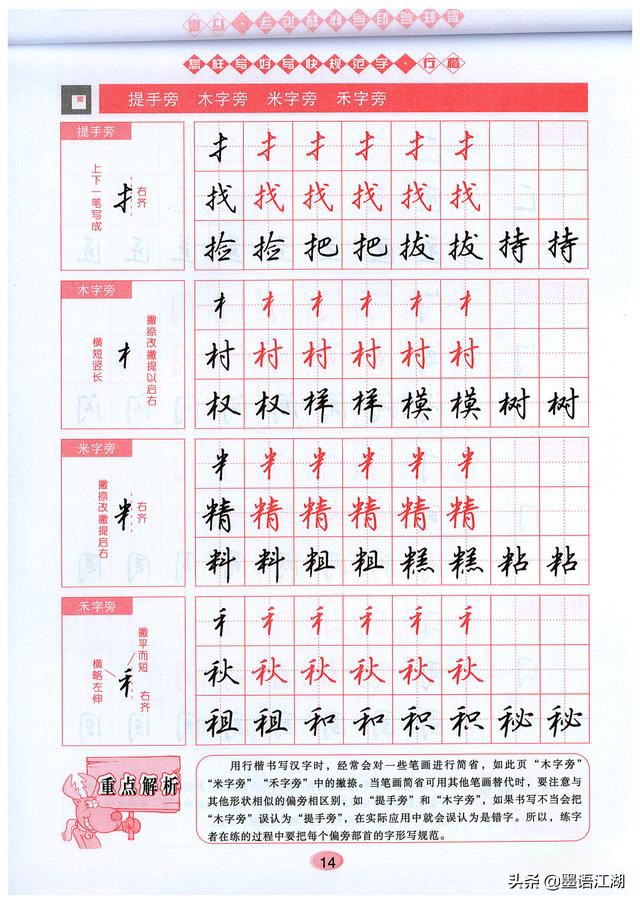 怎样写好写快规范字·行楷
提手旁 木字旁 米字旁 禾字旁
提手旁
上下一笔写成
右齐
扌 扌 扌 扌 扌 扌
找 找 找 找 找 找
捡 捡 把 把 拔 拔 持 持
木字旁
横短竖长
撇捺改撇提以启右
木 木 木 木 木 木
村 村 村 村 村 村
权 权 样 样 模 模 树 树
米字旁
撇捺改撇提启右
右齐
米 米 米 米 米 米
精 精 精 精 精 精
料 料 粗 粗 糕 糕 粘 粘
禾字旁
横略左伸
撇平而短
右齐
禾 禾 禾 禾 禾 禾
秋 秋 秋 秋 秋 秋
租 租 和 和 积 积 秘 秘
重点解析
用行楷书写汉字时，经常会对一些笔画进行简省，如此页“木字旁”
“米字旁”“禾字旁”中的撇捺。当笔画简省可用其他笔画替代时，要注意与
其他形状相似的偏旁相区别，如“提手旁”和“木字旁”，如果书写不当会把
“木字旁”误认为“提手旁”，在实际应用中就会误认为是错字。所以，练字
者在练的过程中要把每个偏旁部首的字形写规范。
14
头条 @墨语江湖